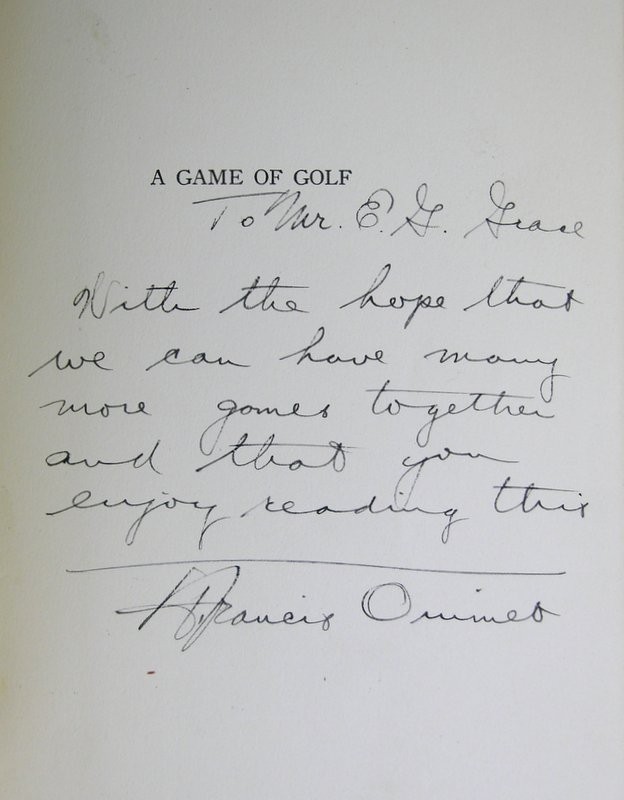 A GAME OF GOLF
To Mr. E. G. Grace
With the hope that
we can have many
more games together
and that you
enjoy reading this
Francis Ouimet